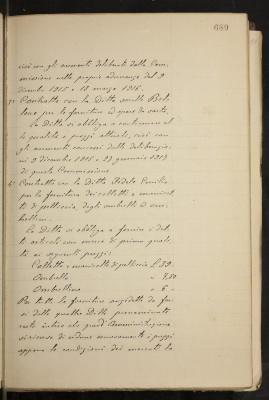 689
cioè con gli aumenti deliberati dalla Com-
missione nelle proprie adunanze del 9
dicembre 1915 e 18 marzo 1916.
3° Contratto con la Ditta
per la fornitura di opere da sarta.
La Ditta si obbliga a continuare al-
le qualità e prezzi attuali, cioè con
gli aumenti concessi dalle deliberazio-
ni 9 dicembre 1915 e 23 gennaio 1917
di questa Commissione
4° Contratto con la Ditta Fedele Emilio
per la fornitura dei colletti e manicot-
ti di pelliccia, degli ombrelli ed om-
brellini.
La Ditta si obbliga a fornire i det-
ti articoli con merce di prima quali-
tà ai seguenti prezzi:
Colletto e manicotto di pelliccia £
Ombrello
Ombrellino " 6 =
Per tutte le forniture suddette da far-
si dalle quattro Ditte prenominate
resta inteso che quest'Amministrazione
si riserva di
appena le condizioni dei mercati lo